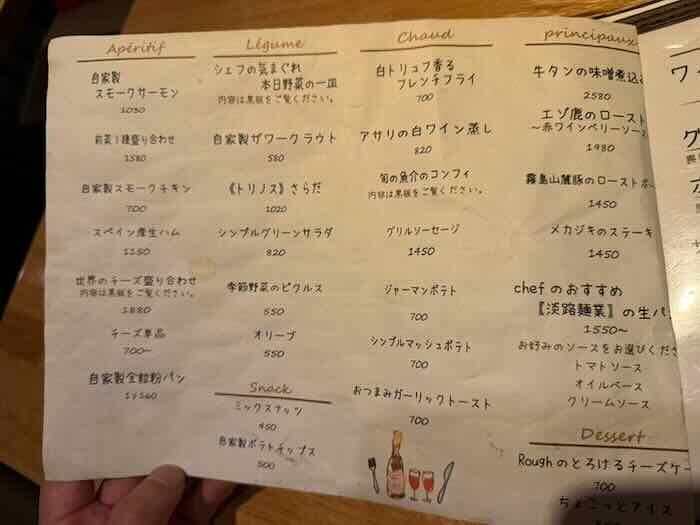 Apéritif
自家製
スモークサーモン
1030
前菜3種盛り合わせ
1580
自家製スモークチキン
700
スペイン産生ハム
1150
世界のチーズ盛り合わせ
内容は黒板をご覧ください。
1880
チーズ単品
700~
自家製全粒粉パン
1ヶ160
Légume
シェフの気まぐれ
本日野菜の一皿
内容は黒板をご覧ください。
自家製ザワークラウト
580
《トリノス》さらだ
1020
シンプルグリーンサラダ
820
季節野菜のピクルス
550
オリーブ
550
Snack
ミックスナッツ
450
自家製ポテトチップス
500
Chaud
白トリュフ香る
フレンチフライ
700
アサリの白ワイン蒸し
820
旬の魚介のコンフィ
内容は黒板をご覧ください。
グリルソーセージ
1450
ジャーマンポテト
700
シンプルマッシュポテト
700
おつまみガーリックトースト
700
principaux
牛タンの味噌煮込
2580
エゾ鹿のロースト
~赤ワインベリーソース
1980
霧島山麓豚のローストポ
1450
メカジキのステーキ
1450
chefのおすすめ
『淡路麺業』の生パ
1550~
お好みのソースをお選びくださ
トマトソース
オイルベース
クリームソース
Dessert
Roughのとろけるチーズケ
700
ちょこっとアイス